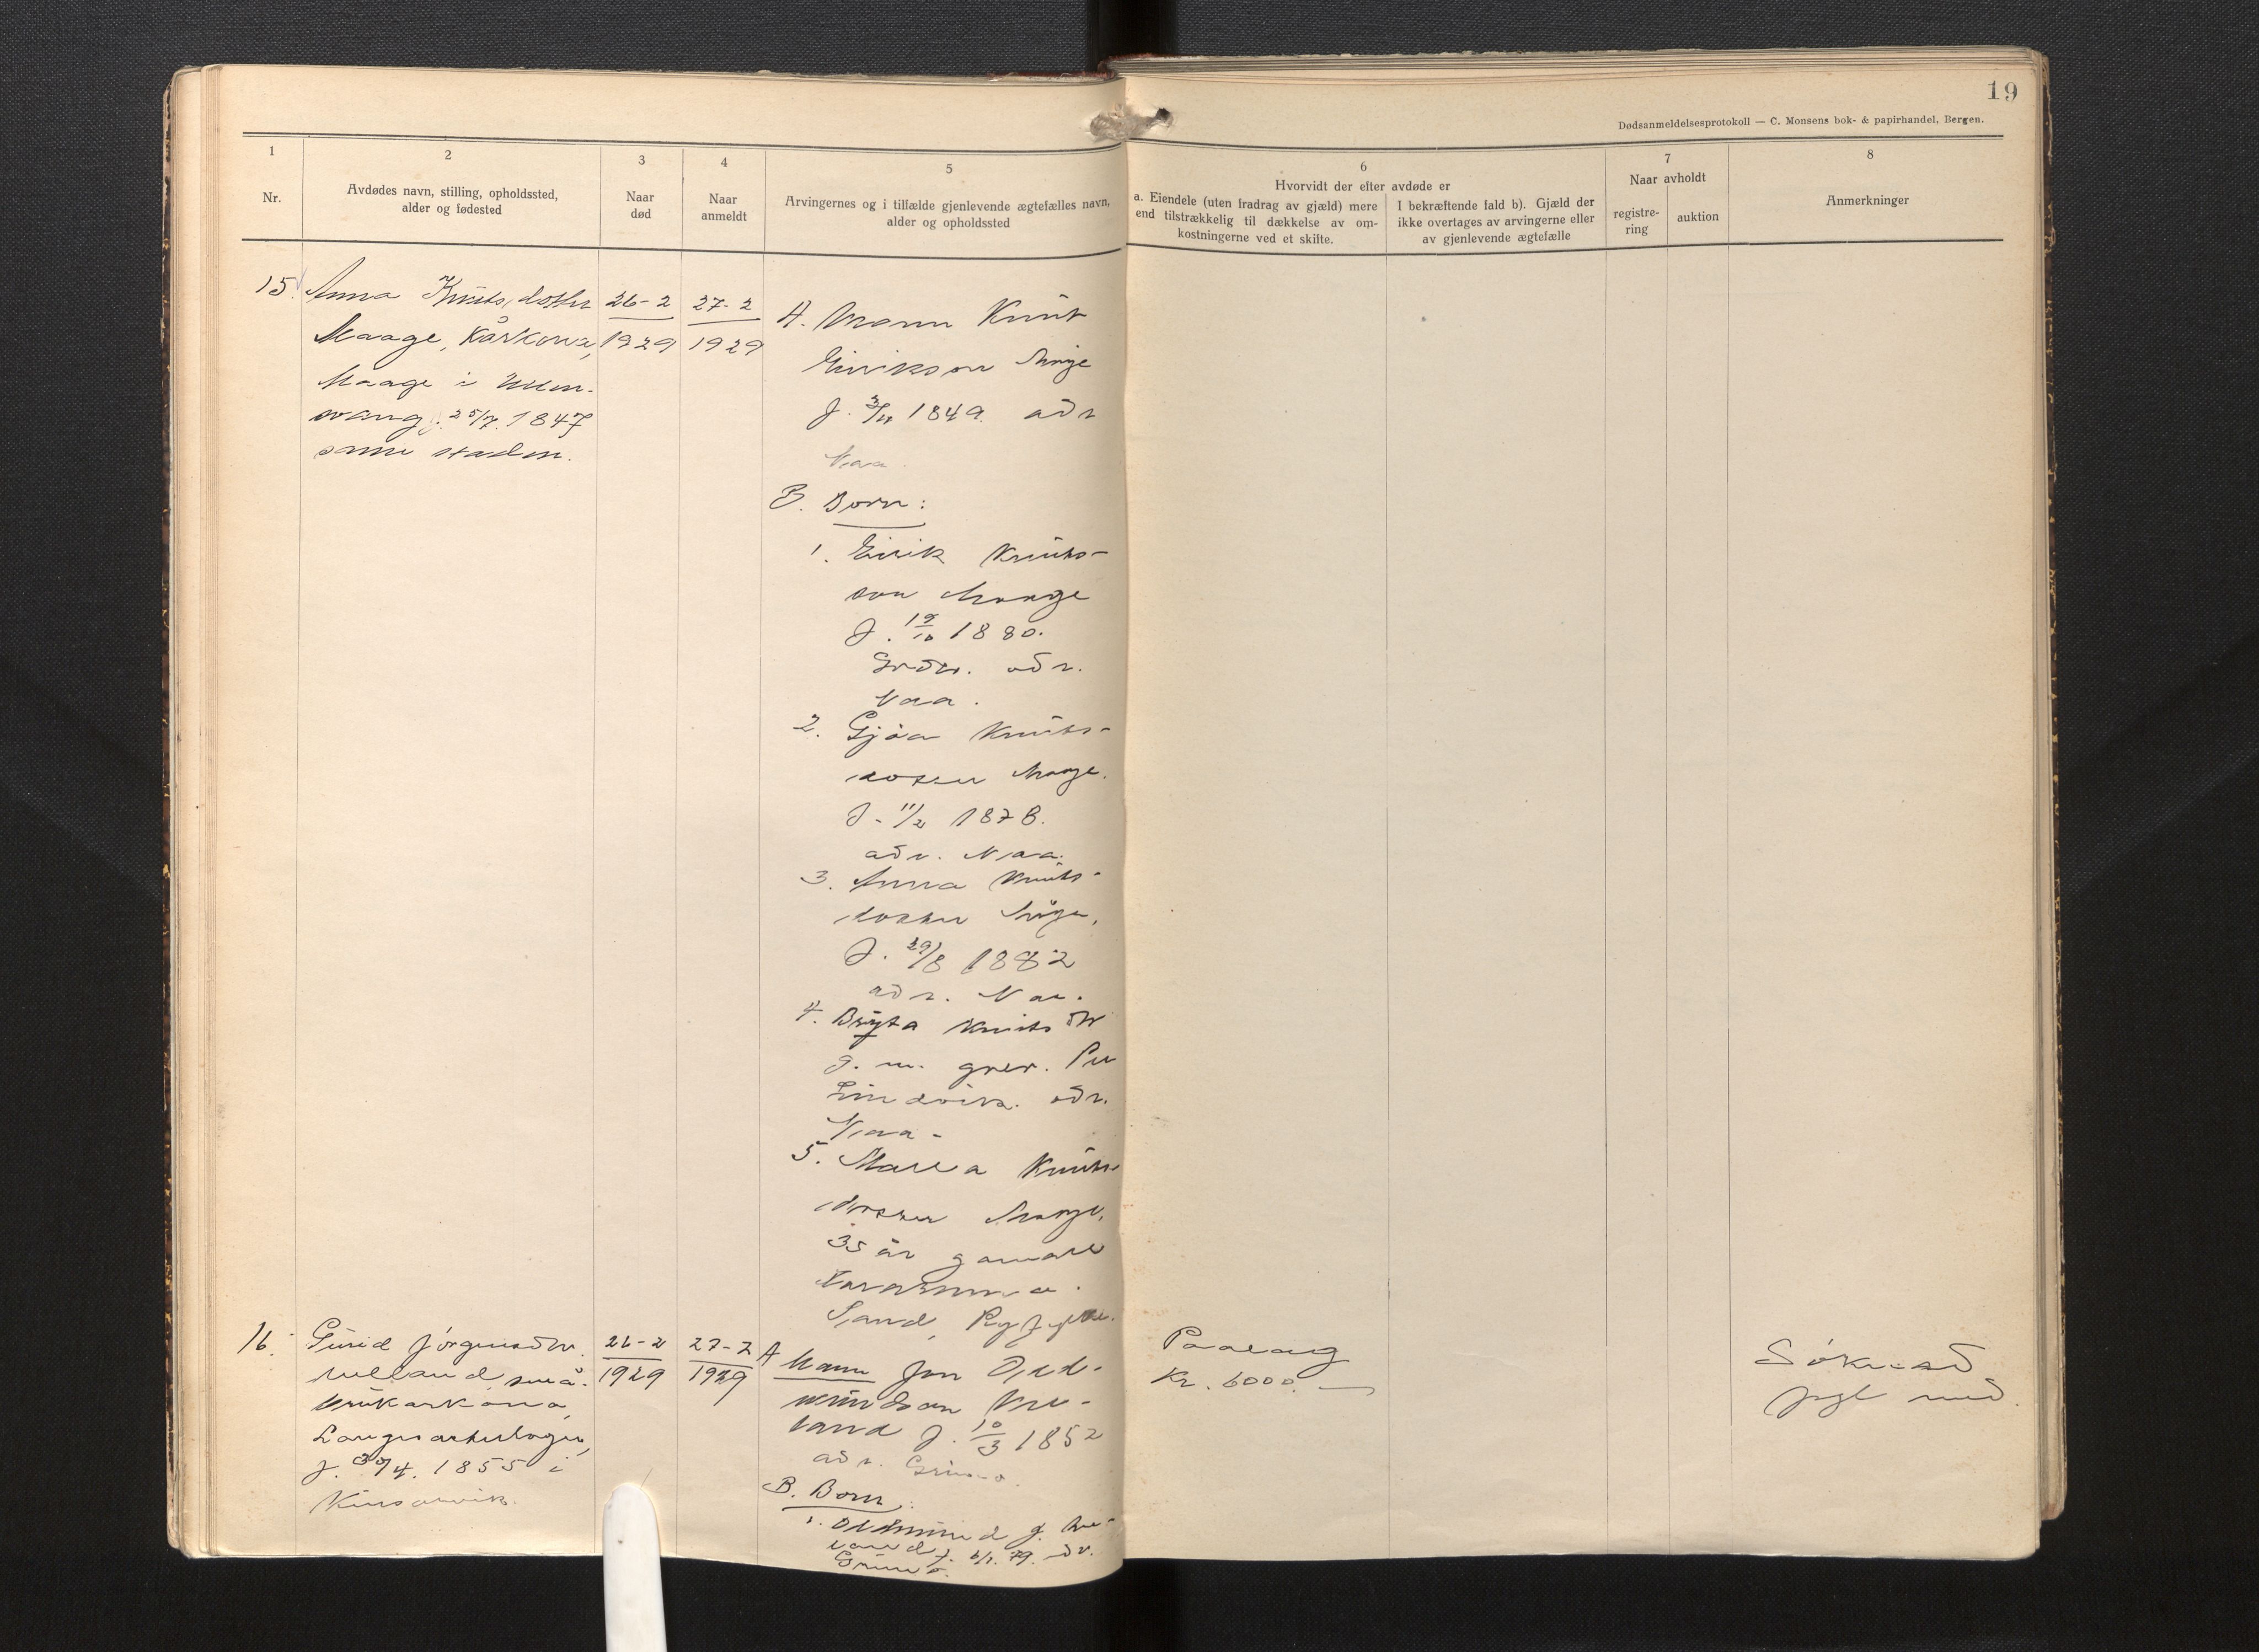 19
Dødsanmeldelsesprotokoll — C. Monsens bok- & papirhandel, Bergen.
1
Nr.
2
Avdødes navn, stilling, opholdssted,
alder og fødested
3
Naar
død
4
Naar
anmeldt
5
Arvingernes og i tilfælde gjenlevende ægtefælles navn,
alder og opholdssted
6
Hvorvidt der efter avdøde er
a. Eiendele (uten fradrag av gjæld) mere
end tilstrækkelig til dækkelse av om-
kostningerne ved et skifte.
I bekræftende fald b). Gjæld der
ikke overtages av arvingerne eller
av gjenlevende ægtefælle
7
Naar avholdt
registre-
ring
auktion
8
Anmerkninger
15.
Anna Knutsdotter
Maage, Kårkona,
Maage i Ullens-
vang f. 25/7. 1847
same staden.
26-2
1929
27-2
1929
A. Mann Knut
Eirikson Maage
f. 1849. adr
Naa.
B. Born:
1. Eirik Knuts-
son Maage
f. 1880.
adr.
Naa.
2. Gjøa Knuts-
dotter Maage.
f. 11/2 1878.
adr. Naa.
3. Anna Knuts-
dotter Maage,
f. 29/8 1882
adr. Naa.
4. Bryta Knutsdtr
g. m. grer. Per
Lindvik. adr.
Naa.
5. Marta Knuts-
dotter Maage,
35 år gamall
Sand, Ryfylke.
16.
Gurid Jørgensdtr.
små-
brukarkona,
f. 30/4. 1855 i
Kinsarvik.
26-2
1929
27-2
1929
A Mann Jon
f. 10/3 1852
adr. Grimo.
B. Born:
1.
Grimo.
Paalag
Kr. 6000.—
Søknad
fylgl med.